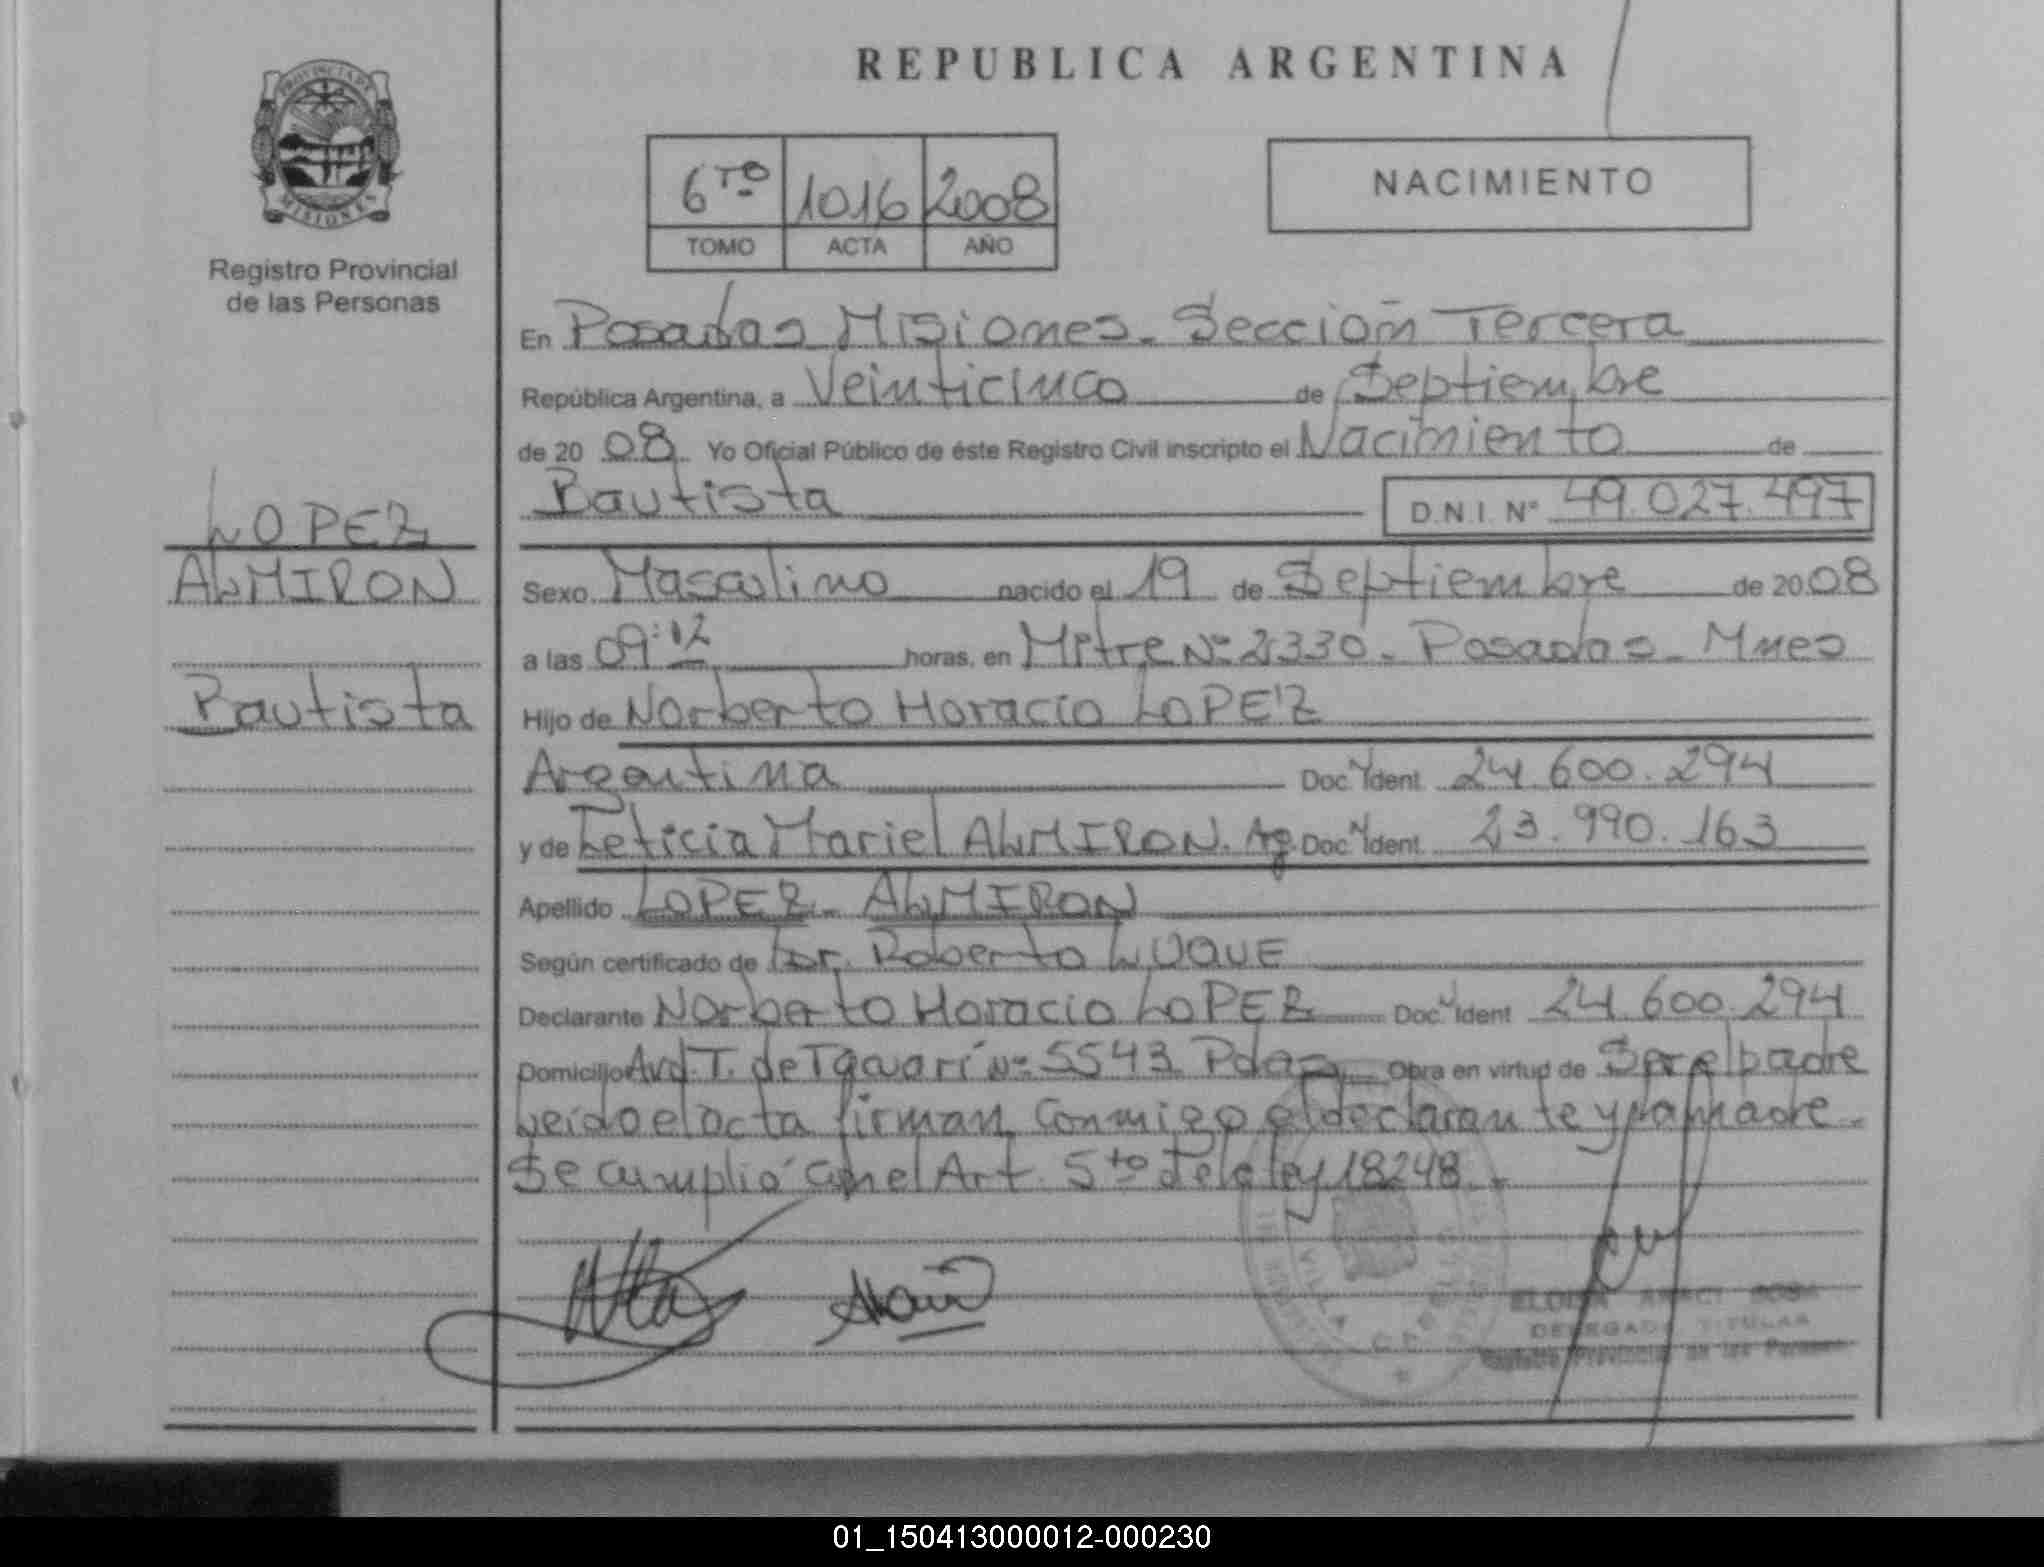 REPUBLICA ARGENTINA
PROVINCIA DE
MISIONES
Registro Provincial
de las Personas
6to 1016 2008
TOMO ACTA AÑO
NACIMIENTO
En Posadas Misiones. Sección Tercera
República Argentina, a Veinticinco de Septiembre
de 2008 Yo Oficial Público de éste Registro Civil inscripto el Nacimiento de
Bautista D.N.I. Nº 49.027.497
LOPEZ
ALMIRON
Bautista
Sexo Masculino nacido el 19 de Septiembre de 2008
a las 09:12 horas, en Mitre Nº 2330. Posadas. Mnes
Hijo de Norberto Horacio LOPEZ
Argentina Doc. Ident. 24.600.294
y de Leticia Mariel ALMIRON. Ag. Doc. Ident. 23.990.163
Apellido LOPEZ - ALMIRON
Según certificado de Dr. Roberto LUQUE
Declarante Norberto Horacio LOPEZ Doc. Ident 24.600.294
Domicilio Avd. T. de Tacuarí Nº 5543. Pdas Obra en virtud de Ser el padre
Leído el acta firman conmigo el declarante y la madre.
Se cumplió con el Art. 5to de la ley 18248.
DELEGADA TITULAR
Registro Provincial de las Personas
01_150413000012-000230